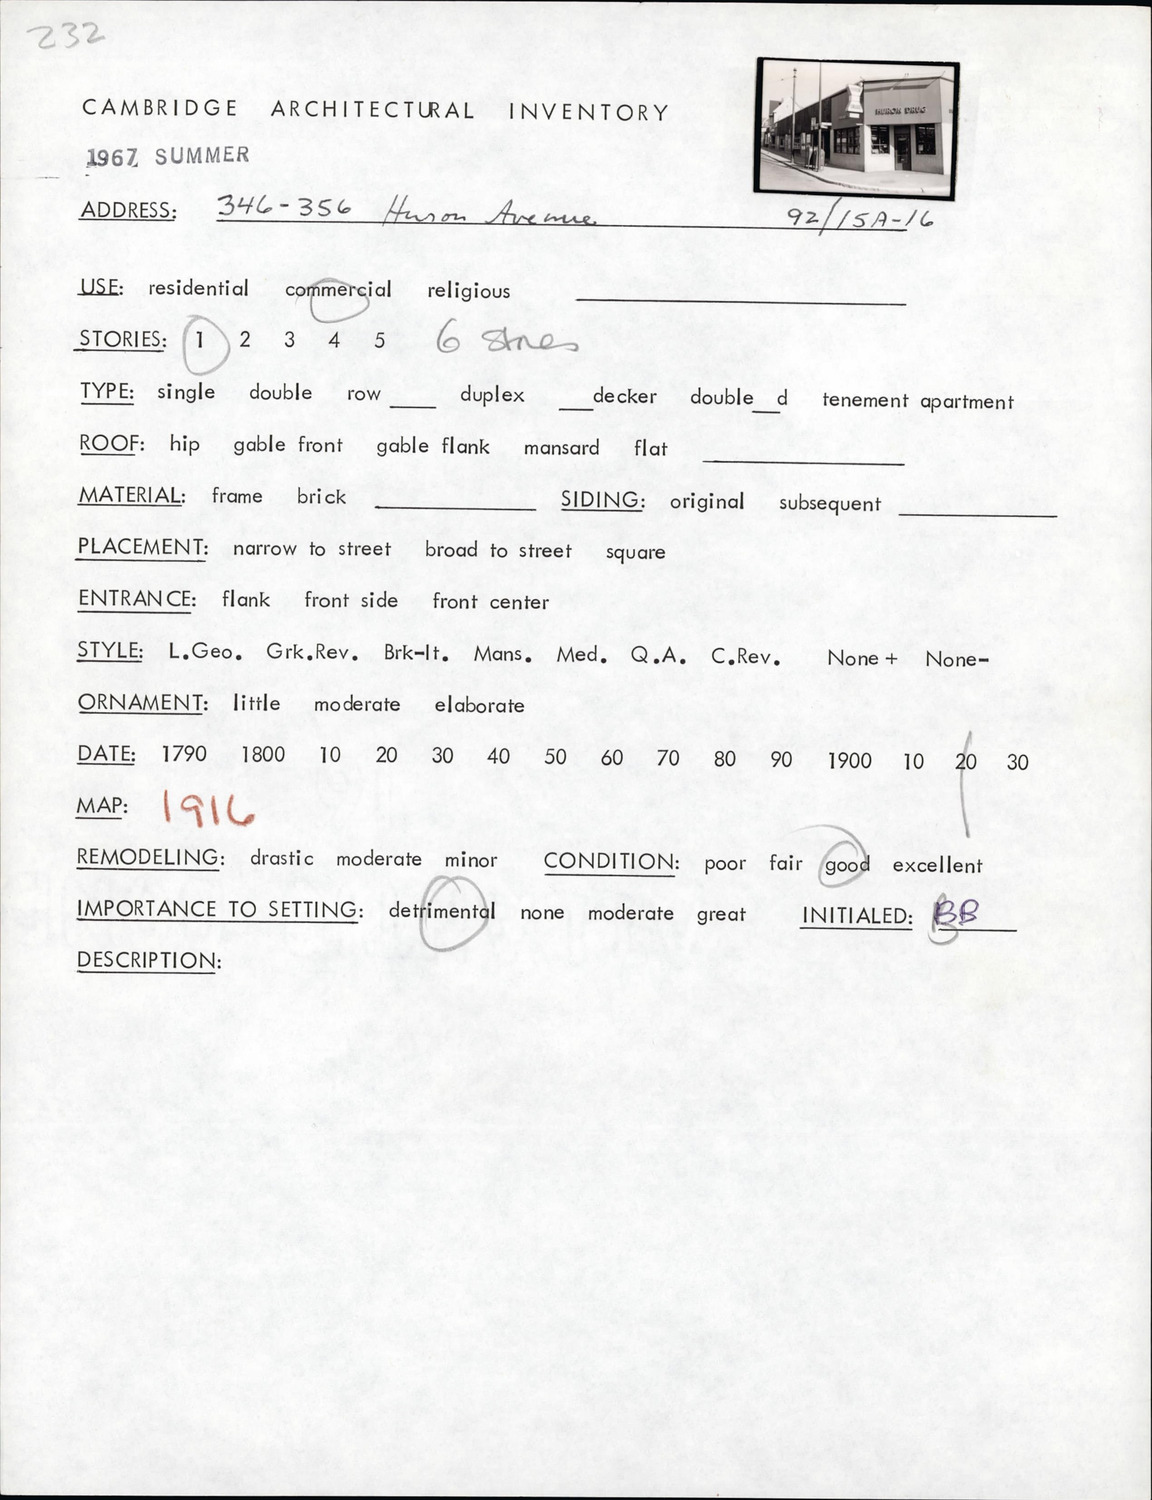 232
CAMBRIDGE ARCHITECTURAL INVENTORY
1967 SUMMER
HURON DRUG
ADDRESS: 346-356 Huron Avenue 92/15A-16
USE: residential commercial religious
STORIES: 1 2 3 4 5 6 stores
TYPE: single double row ____ duplex ____decker double___d tenement apartment
ROOF: hip gable front gable flank mansard flat
MATERIAL: frame brick SIDING: original subsequent
PLACEMENT: narrow to street broad to street square
ENTRANCE: flank front side front center
STYLE: L.Geo. Grk.Rev. Brk-It. Mans. Med. Q.A. C.Rev. None+ None-
ORNAMENT: little moderate elaborate
DATE: 1790 1800 10 20 30 40 50 60 70 80 90 1900 10 20 30
MAP: 1916
REMODELING: drastic moderate minor CONDITION: poor fair good excellent
IMPORTANCE TO SETTING: detrimental none moderate great INITIALED: BB
DESCRIPTION: